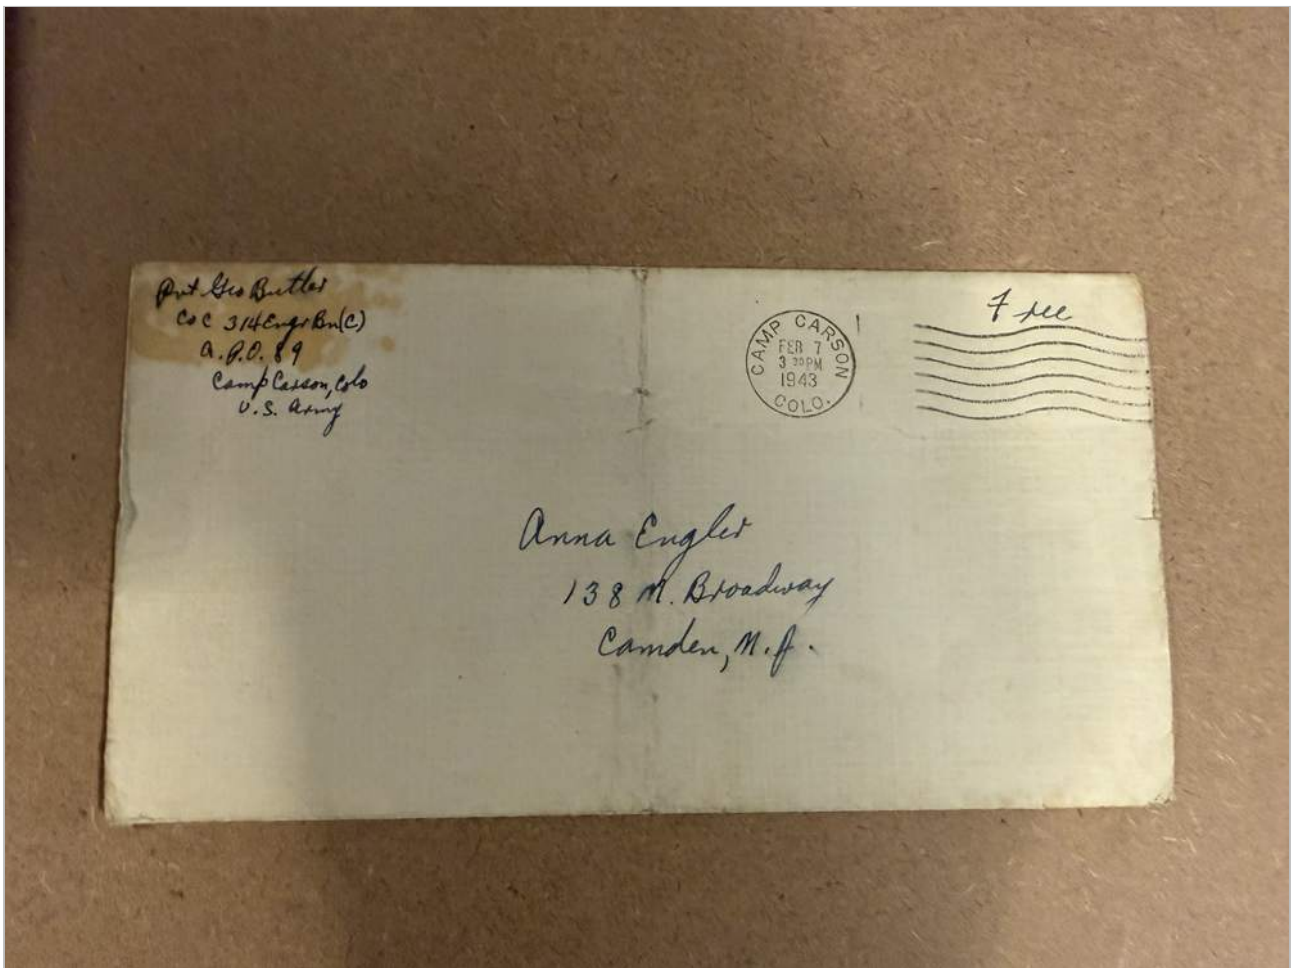 Pvt Geo Butler
Co C 314 Engr Bn (C)
A.P.O. 89
Camp Carson, Colo
U.S. Army
CAMP CARSON
FEB 7
3 30 PM
1943
COLO.
Free
Anna Engler
138 N. Broadway
Camden, N.J.